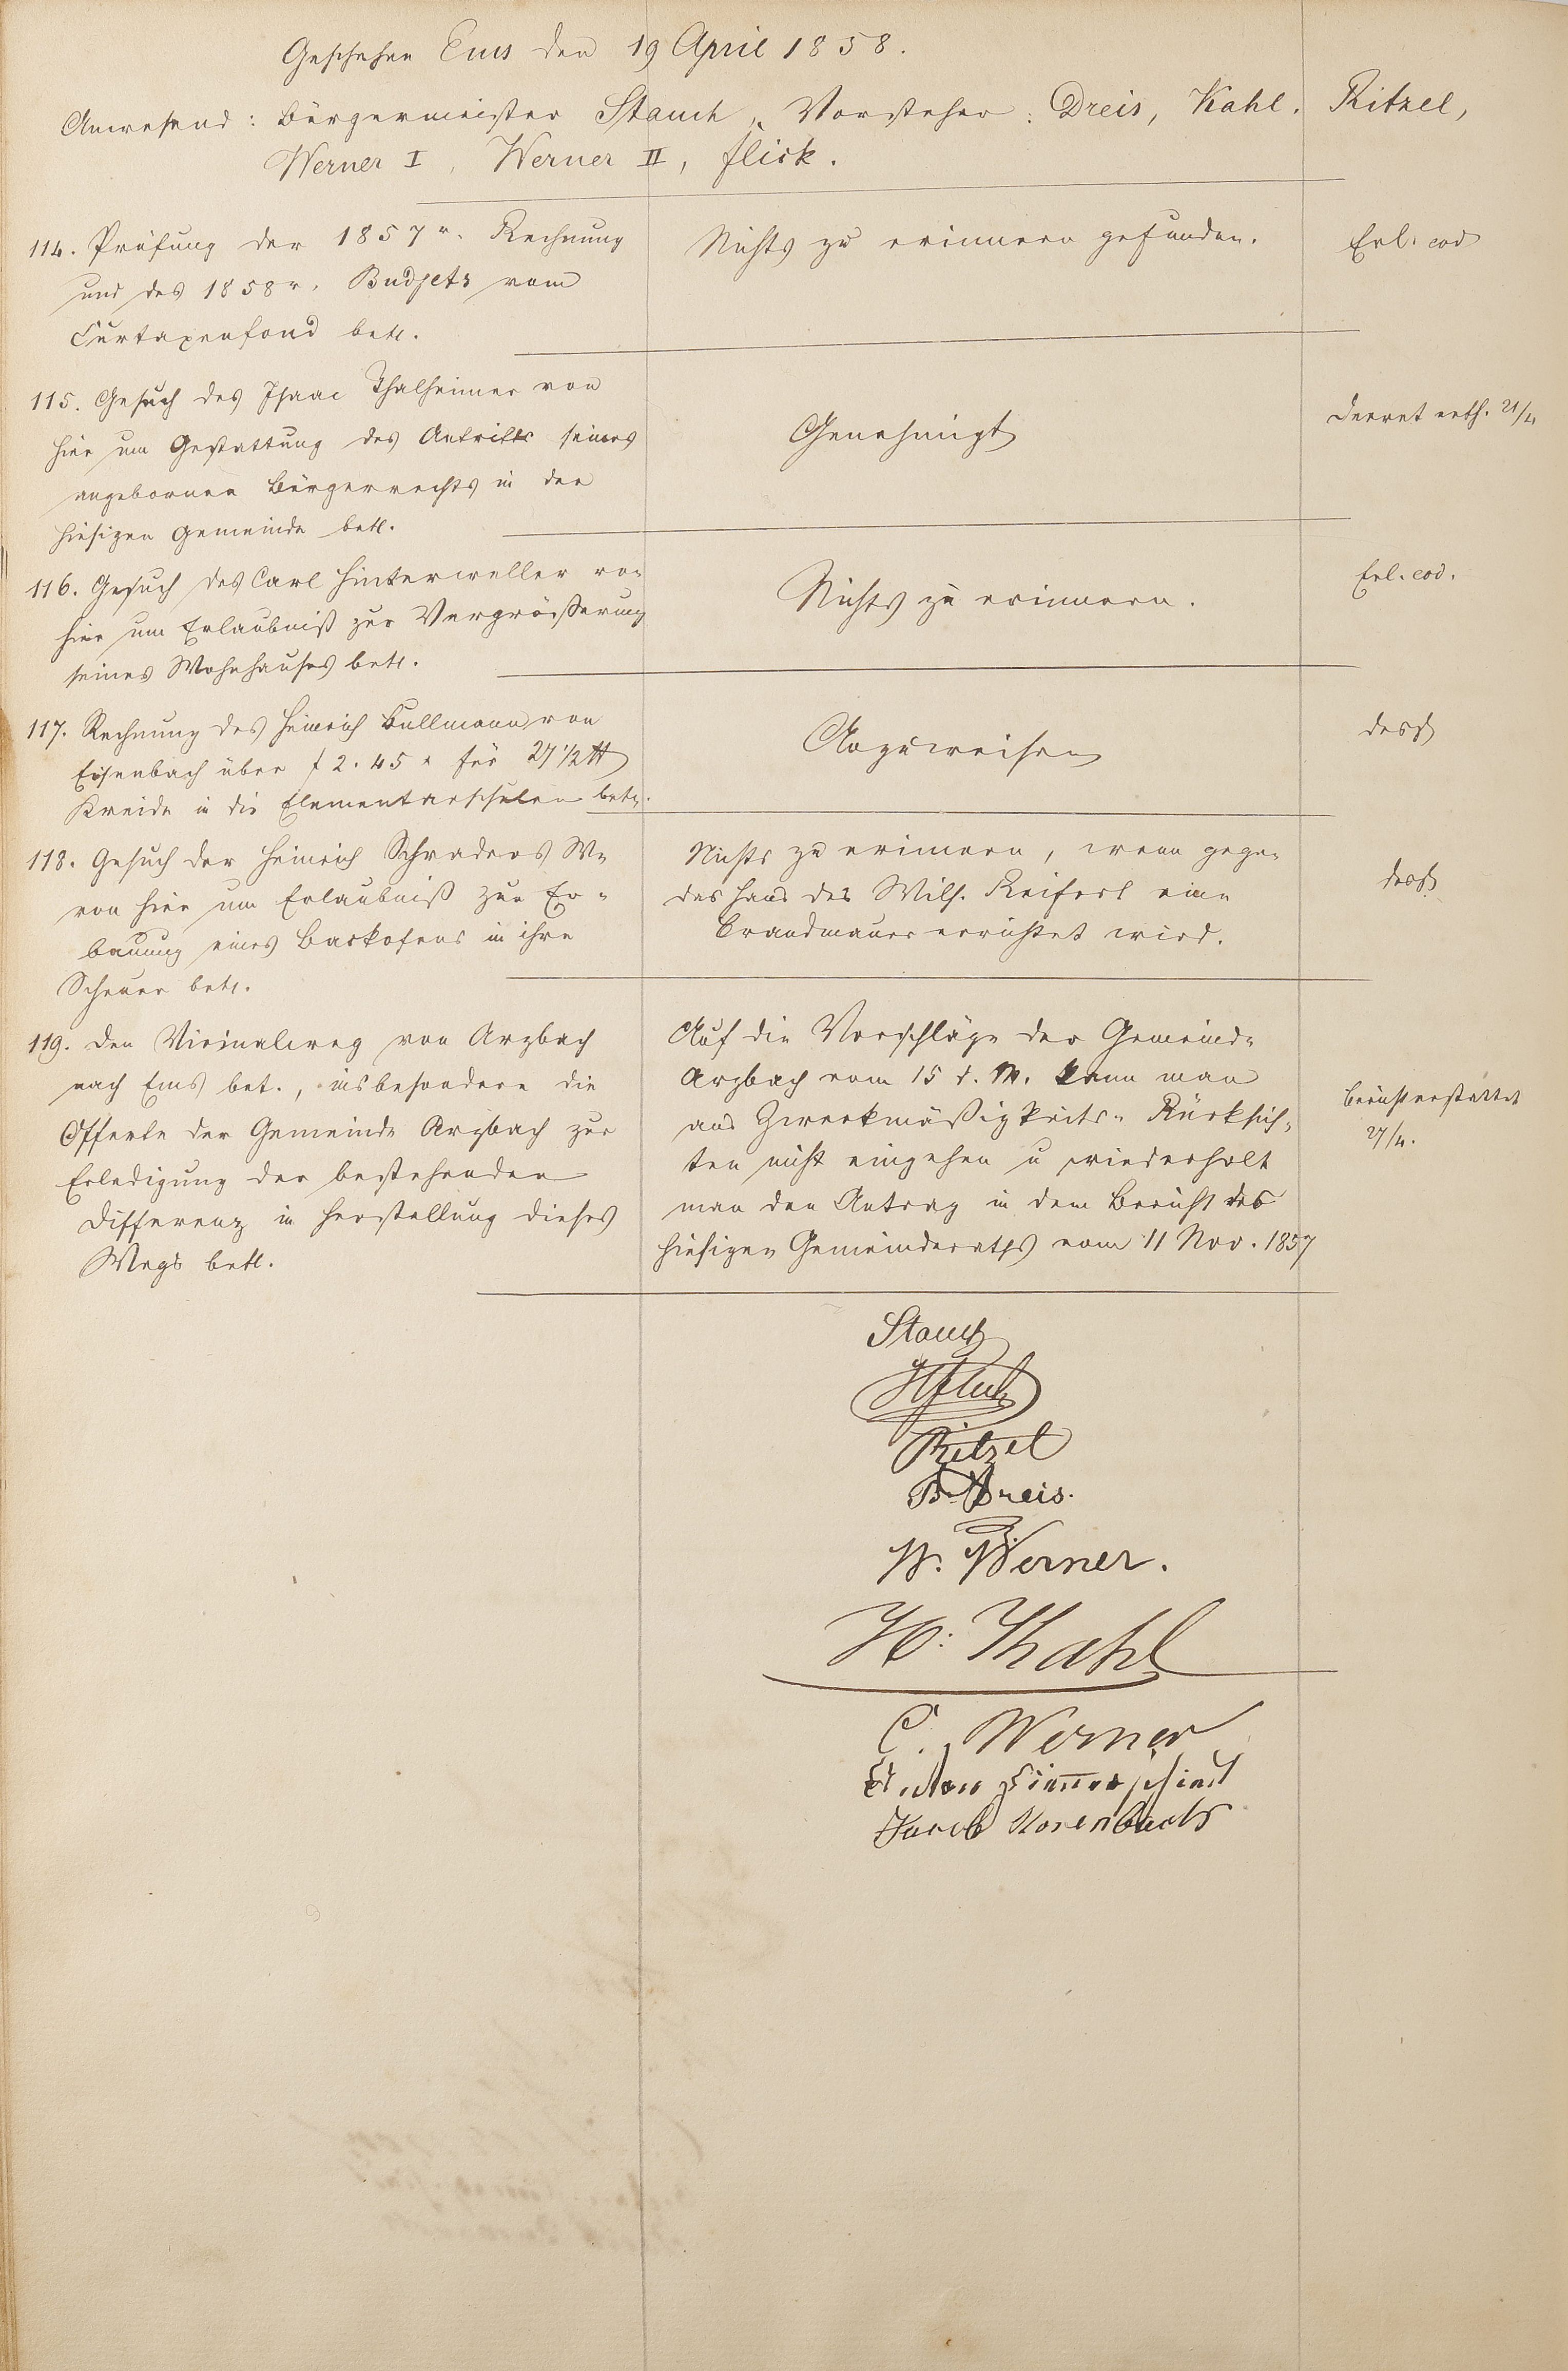 Geschehen Ems den 19 April 1858.
Anwesend: Bürgermeister Stauch, Vorsteher: Dreis, Kahl. Ritzel,
Werner I, Werner II, Flick.
114. Prüfung der 1857r. Rechnung
und des 1858r. Budjets vom
Curtaxenfond betr.
Nichts zu erinnern gefunden.
Erl. eod
115. Gesuch des Isaac Thalheimer von
hier um Gestattung des Antritts seines
angebornen Bürgerrechts in der
hiesigen Gemeinde betr.
Genehmigt
Decret erth. 21/4
116. Gesuch des Carl Hinterweller von
hier um Erlaubniß zur Vergrößerung
seines Wohnhauses betr.
Nichts zu erinnern.
Erl. eod.
117. Rechnung des Heinrich Bullmann von
Eisenbach über f 2. 45 x für 27 1/2 ℔
Kreide in die Elementarschulen betr.
Anzuweisen
desgl
118. Gesuch der Heinrich Schraders We
von hier um Erlaubniß zur Er-
bauung eines Backofens in ihre
Scheuer betr.
Nichts zu erinnern, wenn gegen
das Haus des Wilh. Reifert eine
Brandmauer errichtet wird.
desgl
119. Den Vicinalweg von Arzbach
nach Ems bet., insbesondere die
Offerte der Gemeinde Arzbach zur
Erledigung der bestehenden
Differenz in Herstellung dieses
Wegs betr.
Auf die Vorschläge der Gemeinde
Arzbach vom 15 d. M. kann man
aus Zweckmäßigkeits- Rücksich-
ten nicht eingehen u wiederholt
man den Antrag in dem Bericht des
hiesigen Gemeinderaths vom 11 Nov. 1857
Bericht erstattet
27/4.
Stauch
HFlick
Ritzel
B. Dreis.
W. Werner.
H: Kahl
C. Werner
Anton Zimmerschied
Jacob Rosenbach